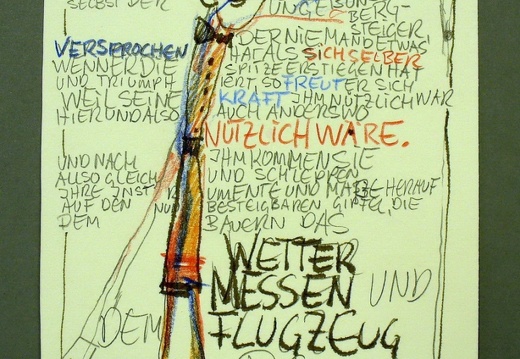 SELBST DER UNGEÜBTE
BERG-
STEIGER,
DER NIEMANDEM WAS
VERSPROCHEN HAT ALS SICH SELBER
WENN ER DIE SPITZE ERSTIEGEN HAT
UND TRIUMPHIERT SO FREUT ER SICH
WEIL SEINE KRAFT IHM NÜTZLICH WAR
HIER UND ALSO AUCH ANDERSWO
NÜTZLICH WÄRE.
UND NACH IHM KOMMEN SIE
ALLSO GLEICH UND SCHLEPPEN
IHRE INSTRUMENTE UND MAßE HERAUF
AUF DEN NUN BESTEIGBAREN GIPFEL, DIE
DEM BAUERN DAS
WETTER
MESSEN UND
DEM FLUGZEUG